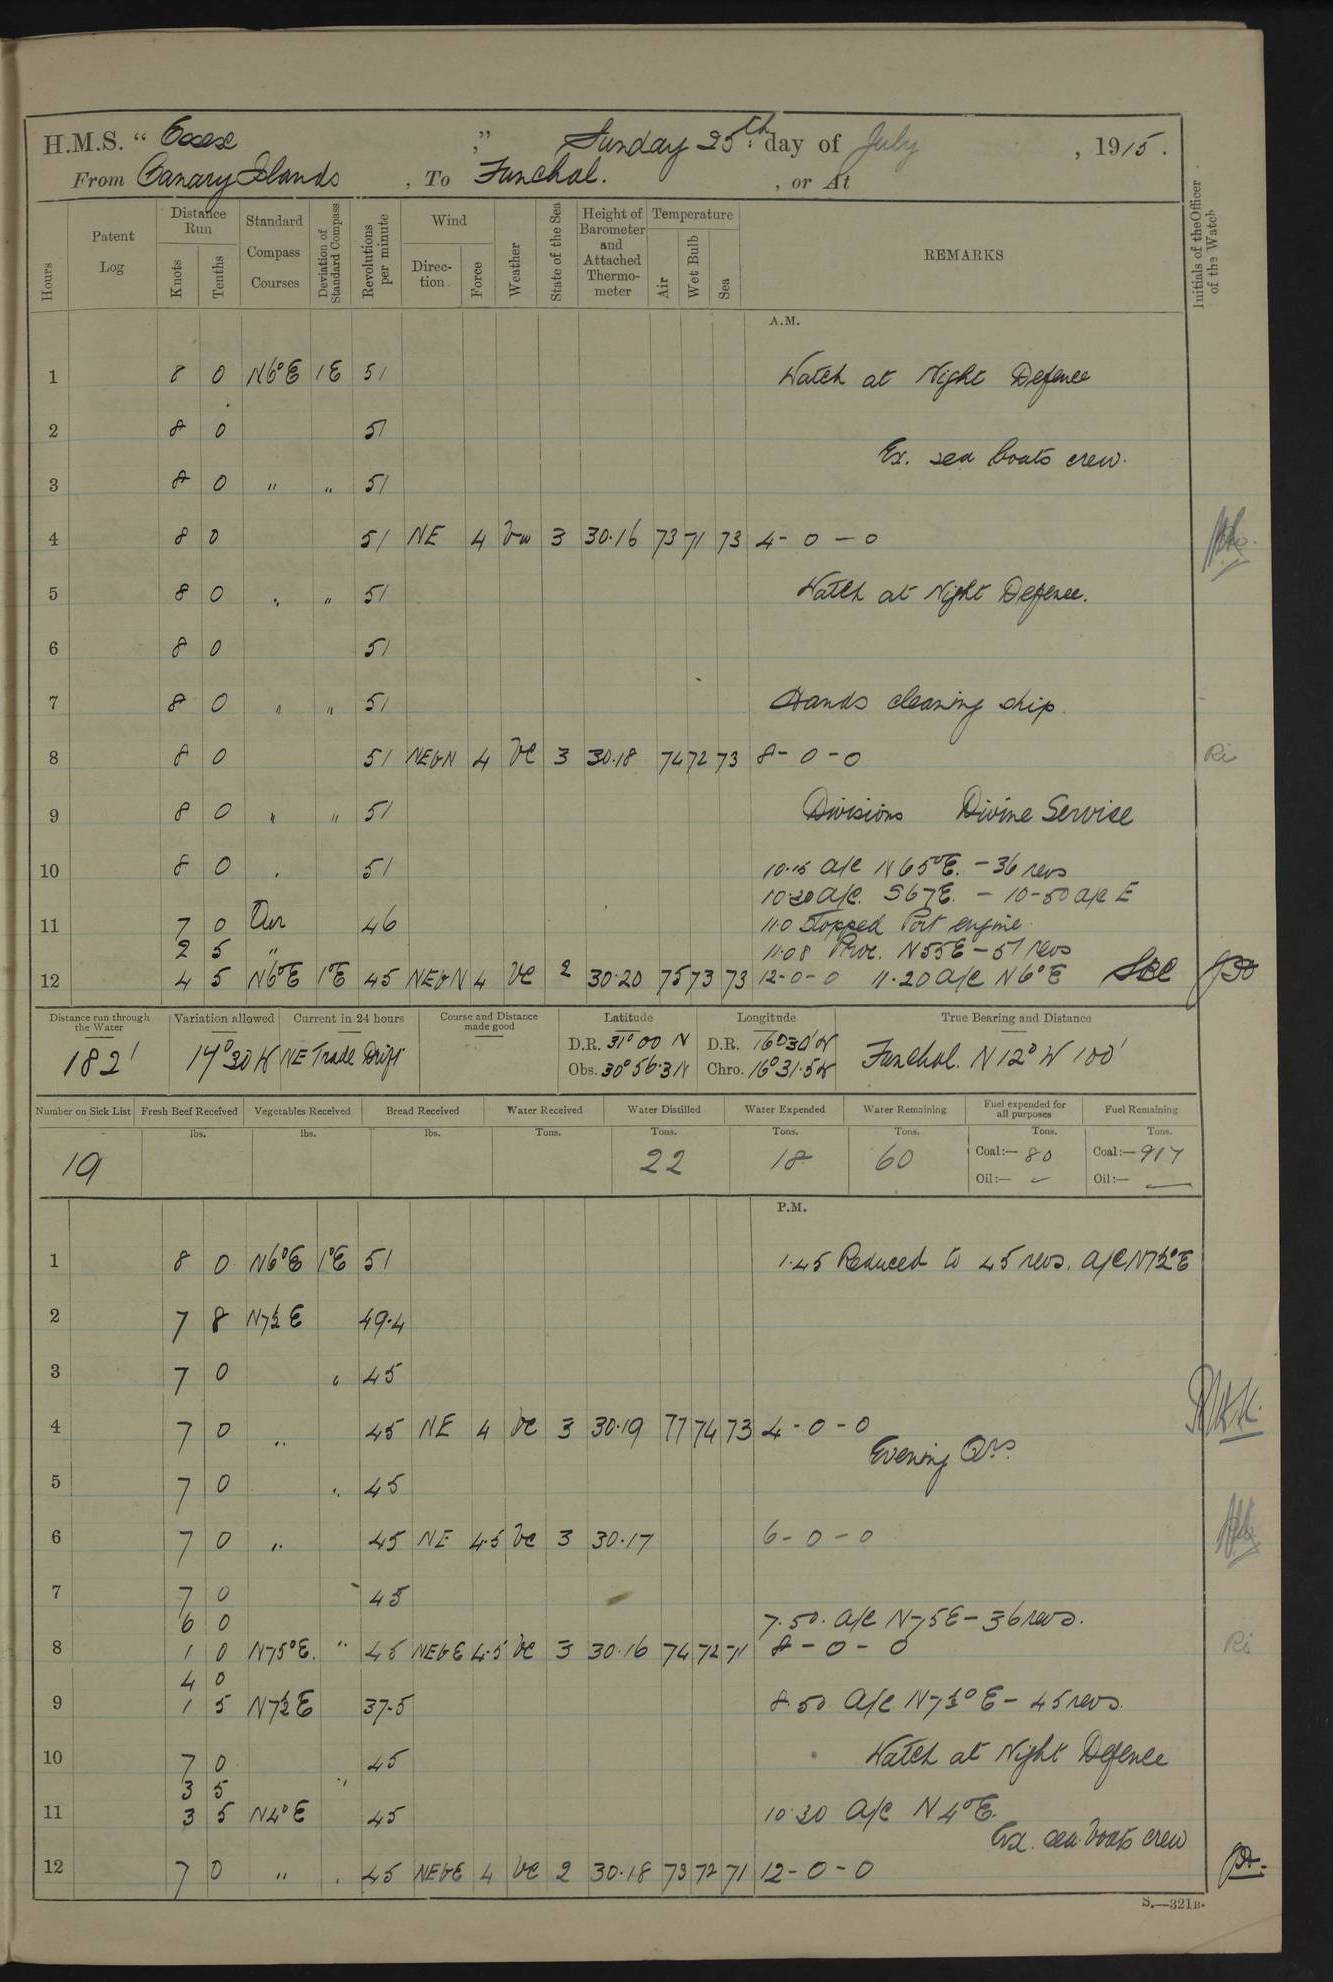 H.M.S. " Essex ," Sunday 25th day of July , 1915.
From Canary Islands , To Funchal. , or At
Hours Patent Log Distance Run Knots Tenths Standard Compass Courses Deviation of Standard Compass Revolutions per minute Wind Direction Force Weather State of the Sea Height of Barometer and Attached Thermometer Temperature Air Wet Bulb Sea REMARKS Initials of the Officer of the Watch
A.M.
1 8 0 N6°E 1E 51 Watch at Night Defence
2 8 0 51
Ex. sea boats crew.
3 8 0 " " 51
4 8 0 51 NE 4 3 30.16 73 71 73 4-0-0
5 8 0 " " 51 Watch at Night Defence.
6 8 0 51
7 8 0 " " 51 Hands cleaning ship.
8 8 0 51 NEbN 4 bc 3 30.18 74 72 73 8-0-0 Ri
9 8 0 " " 51 Divisions Divine Service
10 8 0 " 51 10.15 a/c N65°E. - 36 revs
10.20 a/c. S67E. - 10-50 a/c E
11 7 0 Var 46 11.0 Stopped Port engine.
2 5 " 11.08 Proc. N55E - 51 revs
12 4 5 N6°E 1°E 45 NEbN 4 bc 2 30.20 75 73 73 12-0-0 11.20 a/c N6°E
Distance run through the Water Variation allowed Current in 24 hours Course and Distance made good Latitude Longitude True Bearing and Distance
182' 17°30W NE Trade Drift D.R. 31°00 N D.R. 16°30'W Funchal. N12°W 100'
Obs. 30°56.3N Chro. 16°31.5W
Number on Sick List Fresh Beef Received Vegetables Received Bread Received Water Received Water Distilled Water Expended Water Remaining Fuel expended for all purposes Fuel Remaining
lbs. lbs. lbs. Tons. Tons. Tons. Tons. Tons. Tons.
19 22 18 60 Coal:— 80 Coal:— 917
Oil:— — Oil:— —
P.M.
1 8 0 N6°E 1°E 51 1.45 Reduced to 45 revs. a/c N7½°E
2 7 8 N7½E 49.4
3 7 0 " 45
4 7 0 " 45 NE 4 bc 3 30.19 77 74 73 4-0-0
Evening Qrs.
5 7 0 " 45
6 7 0 " 45 NE 4.5 bc 3 30.17 6-0-0
7 7 0 45
6 0 7.50. a/c N75E - 36 revs.
8 1 0 N75°E. " 45 NEbE 4.5 bc 3 30.16 74 72 71 8-0-0 Ri
4 0
9 1 5 N7½E 37.5 8.50 a/c N7½°E - 45 revs.
10 7 0 45 Watch at Night Defence
3 5 "
11 3 5 N4°E 45 10.30 a/c N4°E.
Ex. sea boats crew
12 7 0 " " 45 NEbE 4 bc 2 30.18 73 72 71 12-0-0
S.—321B.